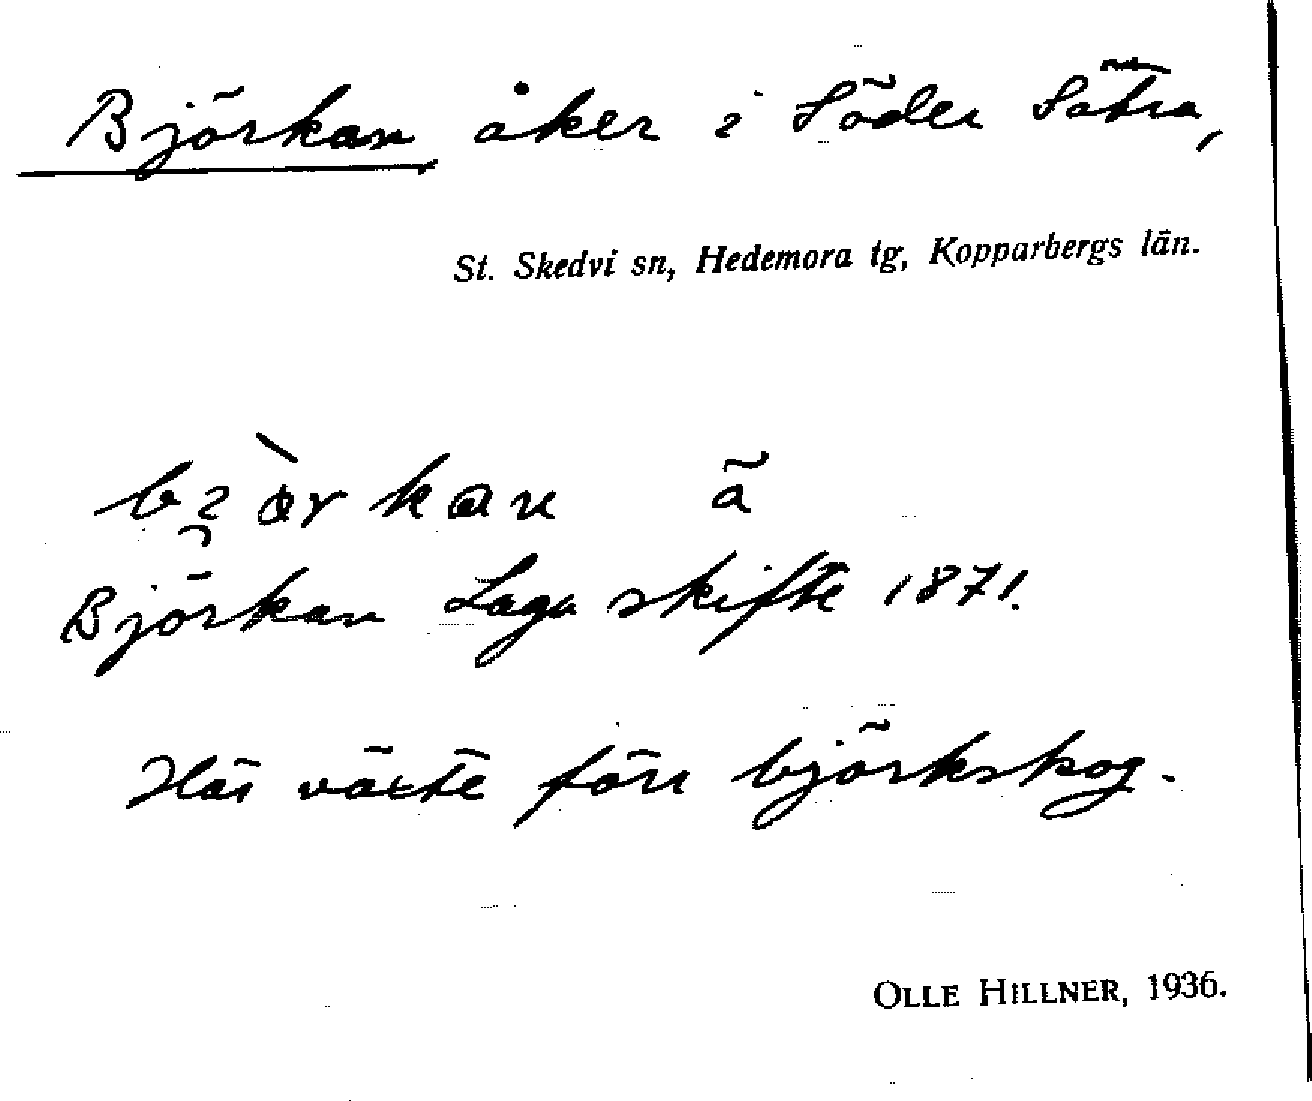 Björkan åker i Söder Sätra,
St. Skedvi sn, Hedemora tg, Kopparbergs län.
Björkan Laga skifte 1871.
Här växte förr björkskog.
OLLE HILLNER, 1936.